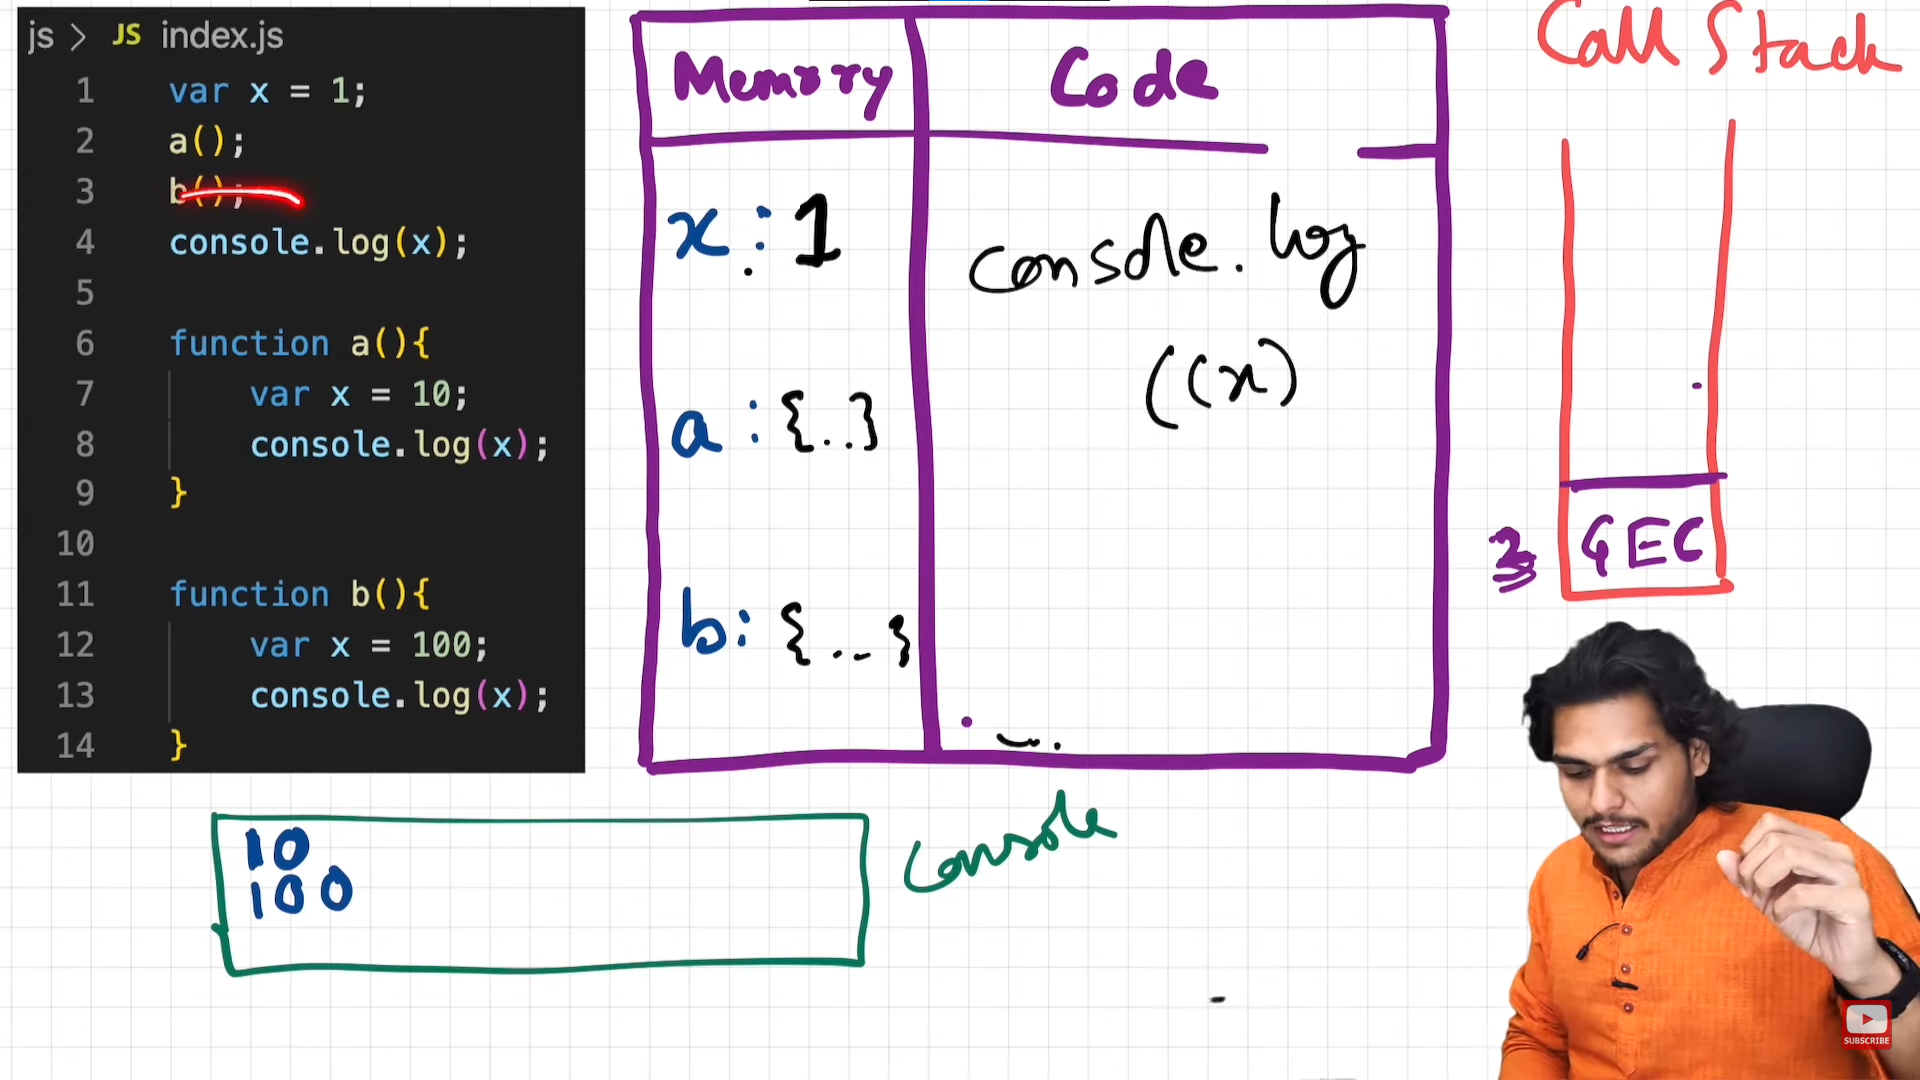 js > JS index.js
1 var x = 1;
2 a();
3 b();
4 console.log(x);
5
6 function a(){
7 var x = 10;
8 console.log(x);
9 }
10
11 function b(){
12 var x = 100;
13 console.log(x);
14 }
Memory Code
x : 1
a : {..}
b: {...}
console.log
((x)
Call Stack
GEC
10
100
Console
SUBSCRIBE